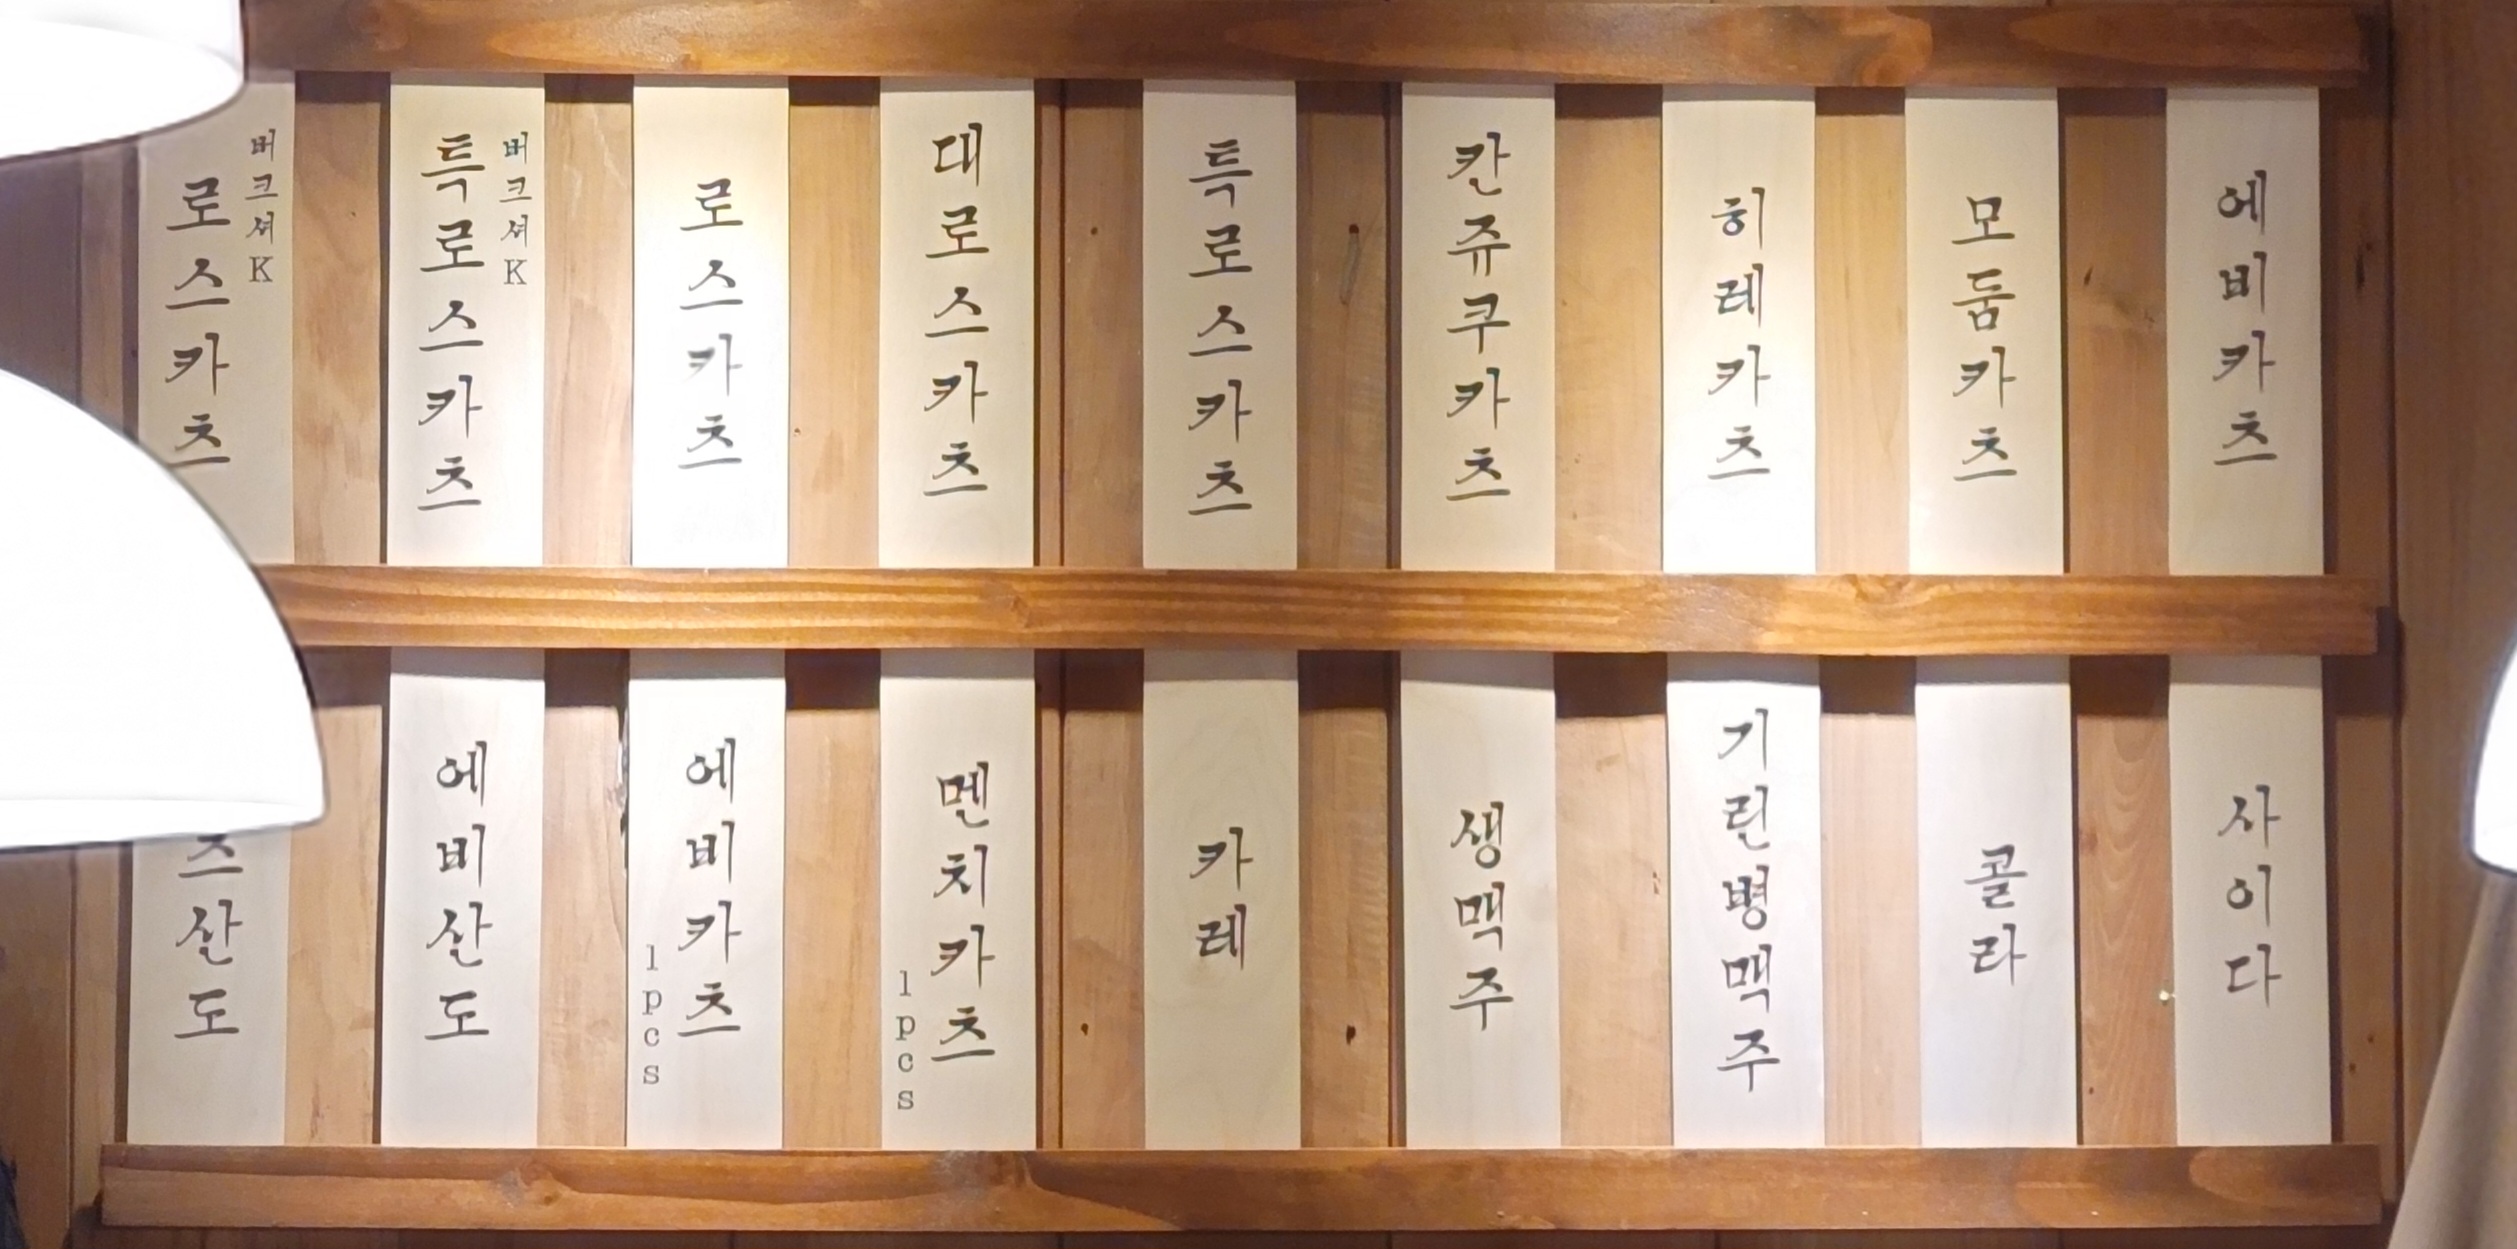 로스카츠
버크셔K
특로스카츠
버크셔K
로스카츠
대로스카츠
특로스카츠
칸쥬쿠카츠
히레카츠
모둠카츠
에비카츠
산도
에비산도
에비카츠
1pcs
멘치카츠
1pcs
카레
생맥주
기린병맥주
콜라
사이다